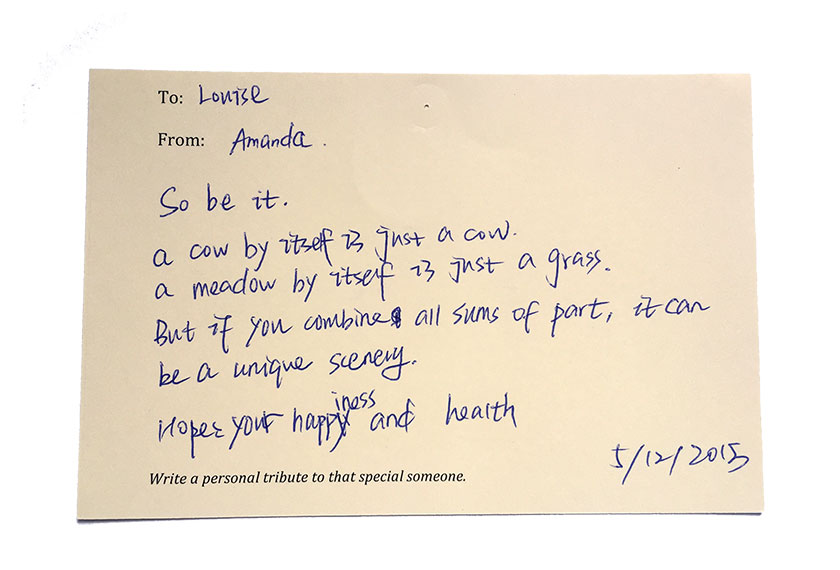 To: Louise
From: Amanda.
So be it.
a cow by itself is just a cow.
a meadow by itself is just a grass.
But if you combine all sums of part, it can
be a unique scenery.
Hopes your happiness and health
5/12/2015
Write a personal tribute to that special someone.